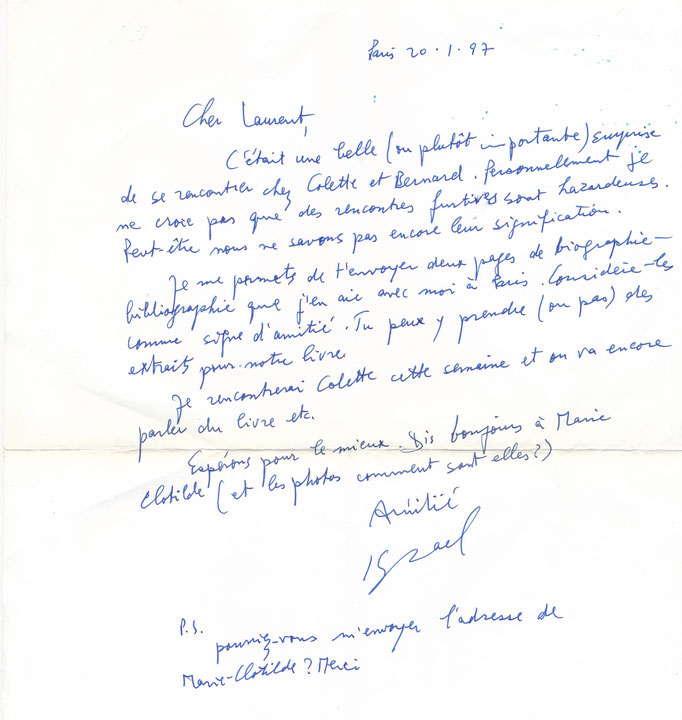 Paris 20.1.97
Cher Laurent,
C'était une belle (ou plutôt importante) surprise
de se rencontrer chez Colette et Bernard. Personnellement je
ne croie pas que des rencontres furtives sont hazardeuses.
Peut-être nous ne savons pas encore leur signification.
Je me permets de t'envoyer deux pages de biographie-
bibliographie que j'en aie avec moi à Paris. Considère-les
comme signe d'amitié. Tu peux y prendre (ou pas) des
extraits pour notre livre.
Je rencontrerai Colette cette semaine et on va encore
parler du livre etc.
Espérons pour le mieux. Dis bonjours à Marie
Clotilde (et les photos comment sont elles?)
Amitié
Izrael
P.S.
pourriez-vous m'envoyer l'adresse de
Marie-Clotilde? Merci